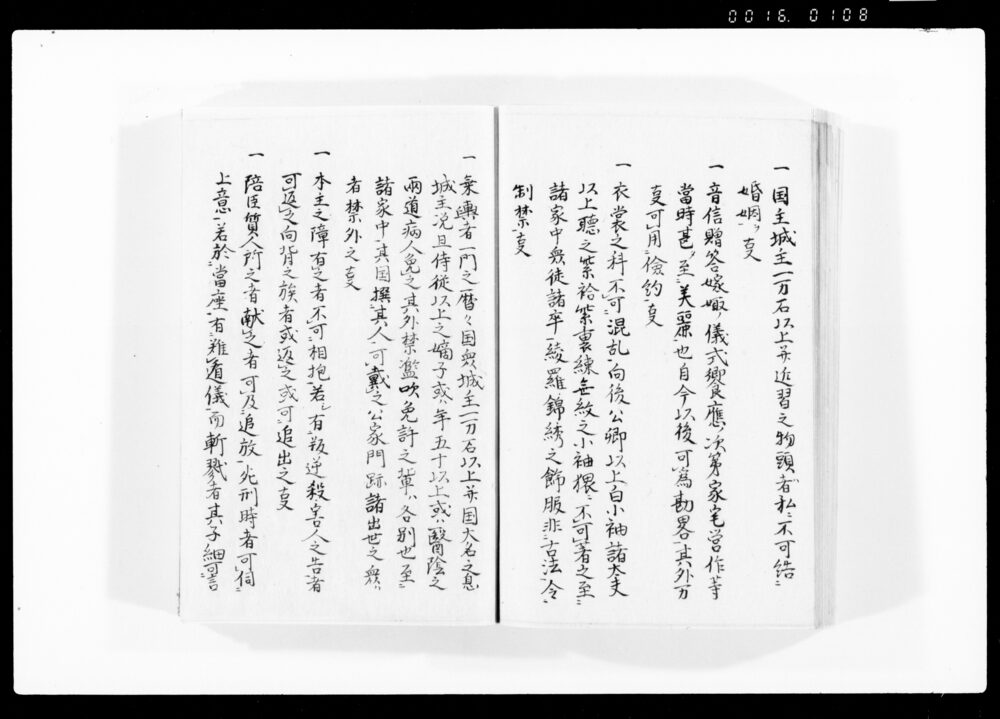 0016.0108
一国主城主一万石以上并近習之物頭者私ニ不可結
婚姻ヿ叓
一音信贈答嫁娵儀式饗應次第家宅営作等
當時甚至美麗也自今以後可為勘畧其外万
叓可用儉約叓
一衣裳之科不可混乱向後公卿以上白小袖諸大夫
以上聴之紫袷紫裏練無紋之小袖猥ニ不可著之至
諸家中無徒諸卒綾羅錦綉之飾服非古法令
制禁叓
一乗輿者一門之暦々国衆城主一万石以上并国大名之息
城主况且侍従以上之嫡子或ハ年五十以上或ハ醫陰之
兩道病人免之其外禁濫吹免許之輩ハ各別也至
諸家中其国撰其人可載之公家門跡諸出世之衆ハ
者禁外之叓
一本主之障有之者不可相抱若有叛逆殺害人之告者
可返之向背之族者或返之或可追出之叓
一陪臣質人所之者献之者可及追放死刑時者可伺
上意若於當座有難遁儀而斬戮者其子細可言